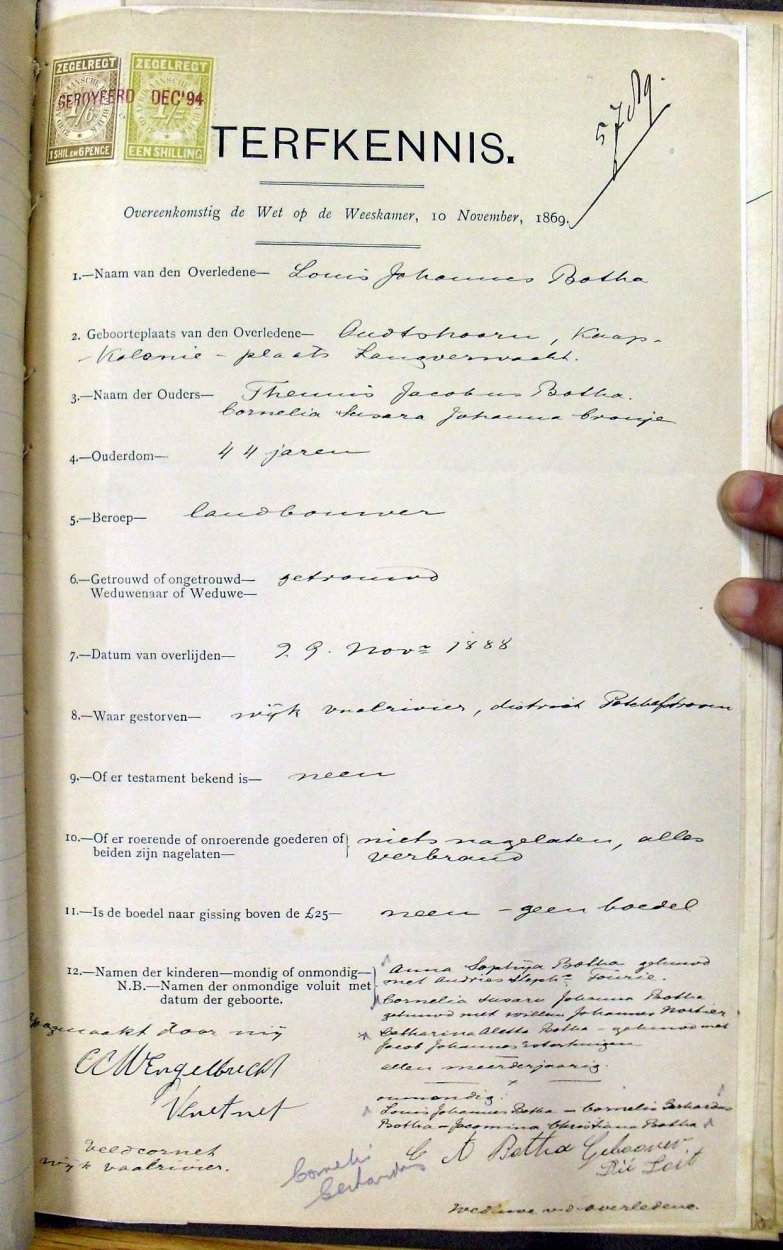 ZEGELREGT ZEGELREGT
GEROYEERD DEC '94
1/6 1/=
1 SHIL. EN 6 PENCE EEN SHILLING
TERFKENNIS.
Overeenkomstig de Wet op de Weeskamer, 10 November, 1869.
1.—Naam van den Overledene— Louis Johannes Botha
2. Geboorteplaats van den Overledene— Oudtshoorn, Kaap-
Kolonie - plaats Langverwacht.
3.—Naam der Ouders— Theunis Jacobus Botha.
Cornelia Susara Johanna Cronje
4.—Ouderdom— 44 jaren
5.—Beroep— landbouwer
6.—Getrouwd of ongetrouwd— getrouwd
Weduwenaar of Weduwe—
7.—Datum van overlijden— Novr 1888
8.—Waar gestorven— wijk vaalrivier, district Potchefstroom
9.—Of er testament bekend is— neen
10.—Of er roerende of onroerende goederen of } niets nagelaten, alles
beiden zijn nagelaten— verbrand
11.—Is de boedel naar gissing boven de £25— neen - geen boedel
12.—Namen der kinderen—mondig of onmondig— } Anna Sophya Botha gehuwd
N.B.—Namen der onmondige voluit met met Andries Steph: Fourie.
datum der geboorte. Cornelia Susara Johanna Botha
gehuwd met Willem Johannes
Catharina Aletta Botha - gehuwd met
Jacob Johannes Esterhuizen
allen meerderjaarig.
onmondig:
Louis Johannes Botha - Cornelis Gerhardus
Botha - Jacomina Christina Botha
Opgemaakt door mij
CCM Engelbrecht
Vcnet
veldcornet
wijk vaalrivier.
Cornelis
Gerhardus
C A Botha Gebooren
Weduwe v.d. overledene.